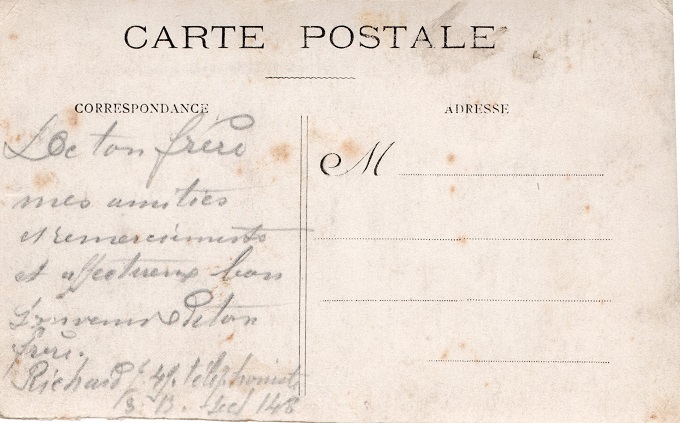 CARTE POSTALE
CORRESPONDANCE
ADRESSE
M
De ton frère
mes amitiés
et remerciements
et affectueux bon
souvenir De ton
frère.
Richard téléphoniste
148